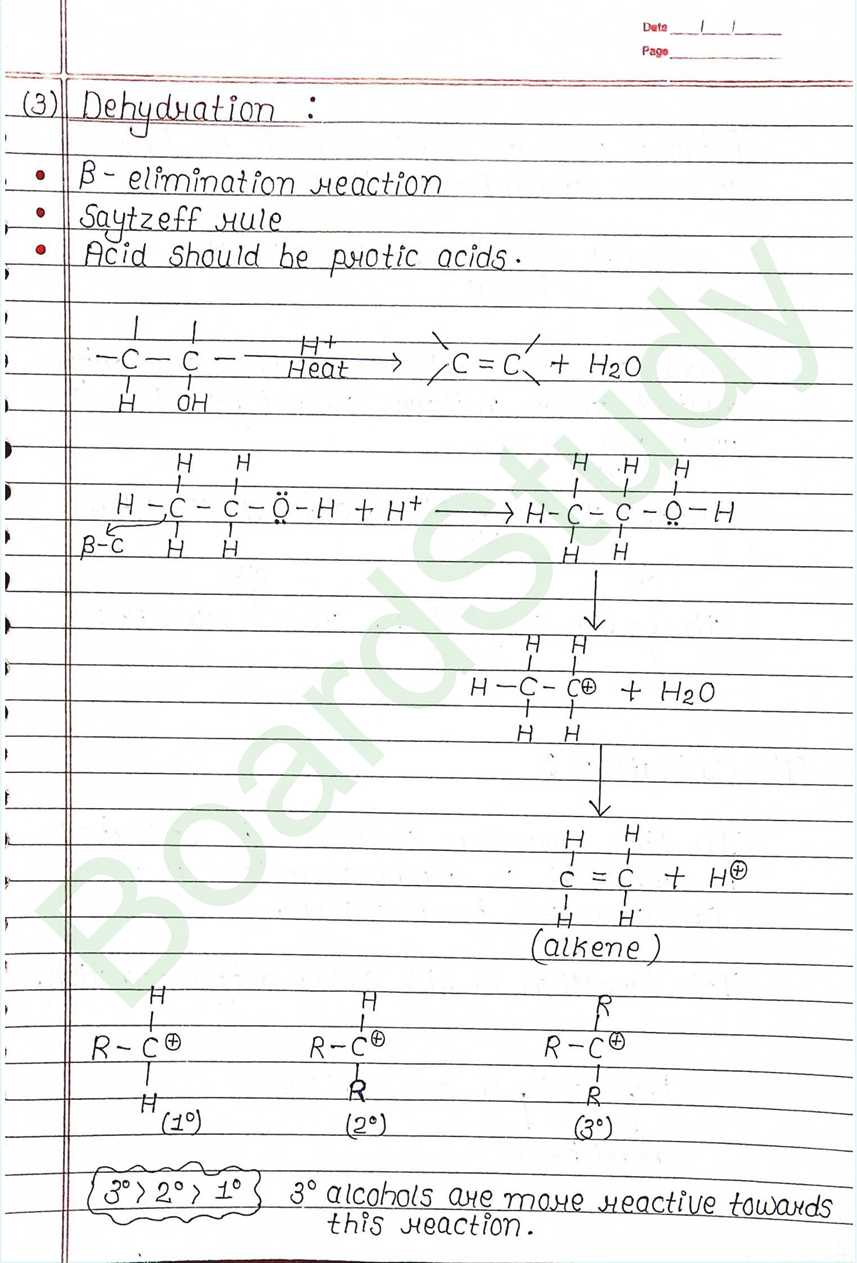 Date __/__/__
Page ______
(3) Dehydration :
• β- elimination reaction
• Saytzeff rule
• Acid should be protic acids.
H+
— C — C — ⟶ C = C + H2O
Heat
H OH
H H H H H
H - C - C - Ö - H + H+ ⟶ H - C - C - Ö - H
β-C H H H H
H H
H - C - C⊕ + H2O
H H
H H
C = C + H⊕
H H
(alkene)
H H R
R - C⊕ R - C⊕ R - C⊕
H R R
(1°) (2°) (3°)
3° > 2° > 1° 3° alcohols are more reactive towards
this reaction.
BoardStudy